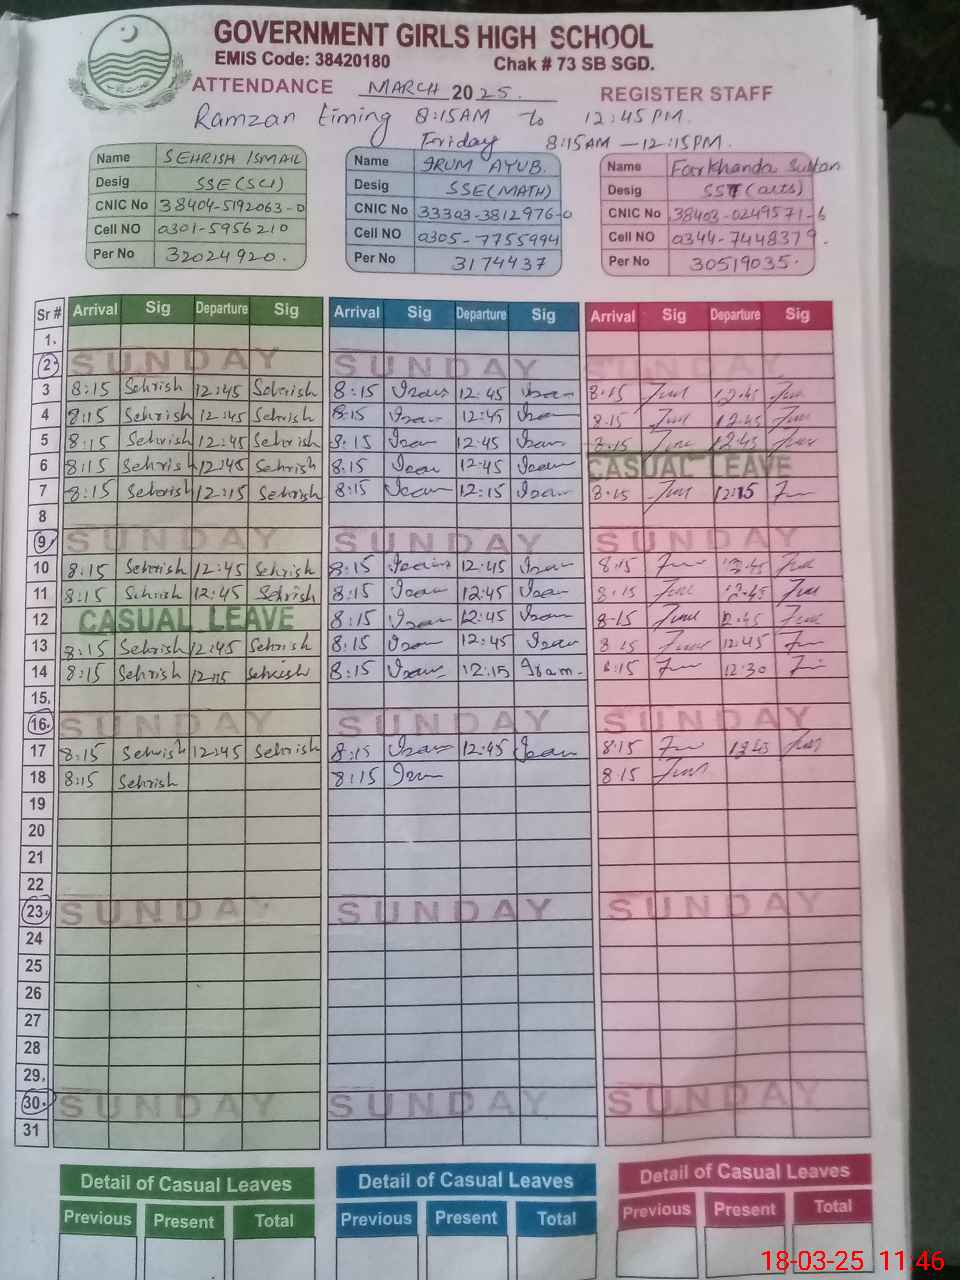 GOVERNMENT GIRLS HIGH SCHOOL
EMIS Code: 38420180 Chak # 73 SB SGD.
ATTENDANCE MARCH 2025. REGISTER STAFF
Ramzan timing 8:15AM to 12:45PM.
Friday 8:15AM - 12:15PM.
Name SEHRISH ISMAIL Name IRUM AYUB. Name Farkhanda Sultan
Desig SSE(SCI) Desig SSE(MATH) Desig SST (arts)
CNIC No 38404-5192063-0 CNIC No 33303-3812976-0 CNIC No 38403-0249571-6
Cell NO 0301-5956210 Cell NO 0305-7755994 Cell NO 0344-7448379.
Per No 32024920. Per No 3174437 Per No 30519035.
Sr # Arrival Sig Departure Sig Arrival Sig Departure Sig Arrival Sig Departure Sig
1.
2. SUNDAY SUNDAY SUNDAY
3 8:15 Sehrish 12:45 Sehrish 8:15 12:45 8:15 12:45
4 8:15 Sehrish 12:45 Sehrish 8:15 12:45 8:15 12:45
5 8:15 Sehrish 12:45 Sehrish 8:15 12:45 8:15 12:45
6 8:15 Sehrish 12:45 Sehrish 8:15 12:45 CASUAL LEAVE
7 8:15 Sehrish 12:15 Sehrish 8:15 12:15 8:15 12:15
8
9. SUNDAY SUNDAY SUNDAY
10 8:15 Sehrish 12:45 Sehrish 8:15 12:45 8:15 12:45
11 8:15 Sehrish 12:45 Sehrish 8:15 12:45 8:15 12:45
12 CASUAL LEAVE 8:15 12:45 8:15 12:45
13 8:15 Sehrish 12:45 Sehrish 8:15 12:45 8:15 12:45
14 8:15 Sehrish 12:15 Sehrish 8:15 12:15 8:15 12:30
15.
16. SUNDAY SUNDAY SUNDAY
17 8:15 Sehrish 12:45 Sehrish 8:15 12:45 8:15 12:45
18 8:15 Sehrish 8:15 8:15
19
20
21
22
23. SUNDAY SUNDAY SUNDAY
24
25
26
27
28
29.
30. SUNDAY SUNDAY SUNDAY
31
Detail of Casual Leaves Detail of Casual Leaves Detail of Casual Leaves
Previous Present Total Previous Present Total Previous Present Total
18-03-25 11:46